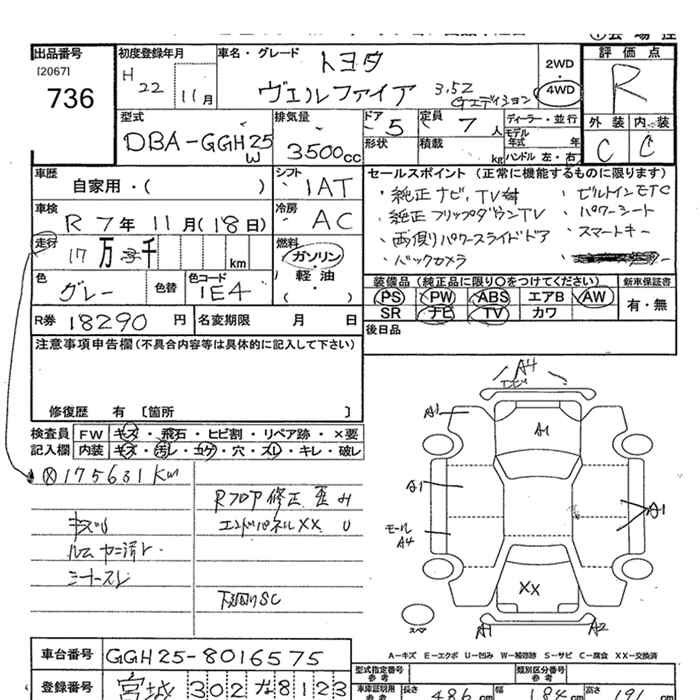 出品番号
[2067]
736
初度登録年月
H 22 11月
車名・グレード
トヨタ
ヴェルファイア 3.5Z
Gエディション
2WD
4WD
評価点
R
外装 内装
C C
型式
DBA-GGH25W
排気量
3500cc
ドア 5
定員 7人
形状
積載 kg
ディーラー・並行
モデル年式 年
ハンドル 左・右
車歴
自家用・( )
シフト
IAT
車検
R 7年 11月(18日)
冷房
AC
走行
17万 千 km
燃料
ガソリン
軽・油
( )
色
グレー
色替
色コード
1E4
R券 18290円
名変期限 月 日
セールスポイント(正常に機能するものに限ります)
・純正ナビ、TV
・純正フリップダウンTV
・両側パワースライドドア
・バックカメラ
・ビルトインETC
・パワーシート
・スマートキー
装備品(純正品に限り○をつけてください)
新車保証書
PS PW ABS エアB AW
SR ナビ TV カワ
有・無
後日品
注意事項申告欄(不具合内容等は具体的に記入して下さい)
修復歴 有 [箇所 ]
検査員記入欄
FW キズ・飛石・ヒビ割・リペア跡・×要
内装 キズ・汚レ・コゲ・穴・スレ・キレ・破レ
175631Km
Rフロア修正歪み
エンドパネルXX U
下回りSC
A4
A1
A1
A1
A1
モール
A4
XX
スペア
A1
A2
A-キズ E-エクボ U-凹み W-補修跡 S-サビ C-腐食 XX-交換済
車台番号
GGH25-8016575
登録番号
宮城 302 な 8123
型式指定番号
参考
類別区分番号
参考
車庫証明用
長さ 486cm
幅 184cm
高さ 191cm